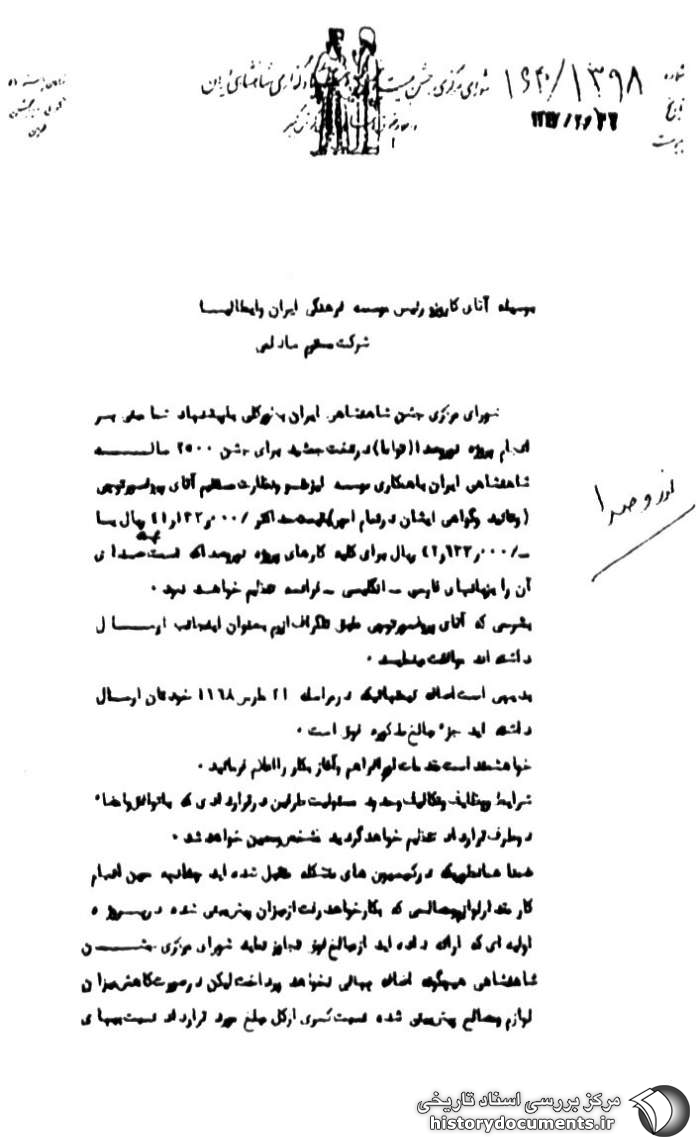 شماره ۱۶۴۰/۱۳۹۸
تاریخ
پیوست
شورای مرکزی جشن شاهنشاهی ایران
بوسیله آقای کاروزو رئیس موسسه فرهنگی ایران و ایتالیا
شرکت
شورای مرکزی جشن شاهنشاهی ایران بطورکلی با پیشنهاد شما مبنی بر
انجام پروژه نور و صدا در تخت جمشید برای جشن ۲۵۰۰ ساله
شاهنشاهی ایران با همکاری موسسه و نظارت مستقیم آقای پروفسور
(و تائید و گواهی ایشان در تمام امور) حداکثر
ریال برای کلیه کارهای پروژه نور و صدا که قسمت صدای
آن را بزبانهای فارسی - انگلیسی - فرانسه تنظیم خواهد نمود .
بشرحی که آقای پروفسور طبق تلگراف بعنوان اینجانب ارسال
داشته اند موافقت مینماید .
بدیهی است اضافه در مراسله ۲۱ مارس ۱۹۶۸ خودتان ارسال
داشته اید جزء مبالغ مذکوره فوق است .
خواهشمند است مقدمات فراهم و آغاز بکار را اعلام فرمائید .
شرایط و وظایف و تکالیف و حدود مسئولیت طرفین در قراردادی که با توافق و امضاء
دو طرف قرارداد تنظیم خواهد گردید مشخص و معین خواهد شد .
ضمنا همانطوریکه در کمیسیون های متشکله قبول شده اید چنانچه حین انجام
کار مقدار لوازم و مصالحی که بکار خواهد رفت از میزان پیش بینی شده در پروژه
اولیه ای که ارائه داده اید از مبالغ فوق تجاوز نماید شورای مرکزی جشن
شاهنشاهی هیچگونه اضافه بهائی نخواهد پرداخت لیکن در صورت کاهش میزان
لوازم و مصالح پیش بینی شده نسبت کسری از کل مبلغ مورد قرارداد نسبت ببهای
نور و صدا
مرکز بررسی اسناد تاریخی
historydocuments.ir